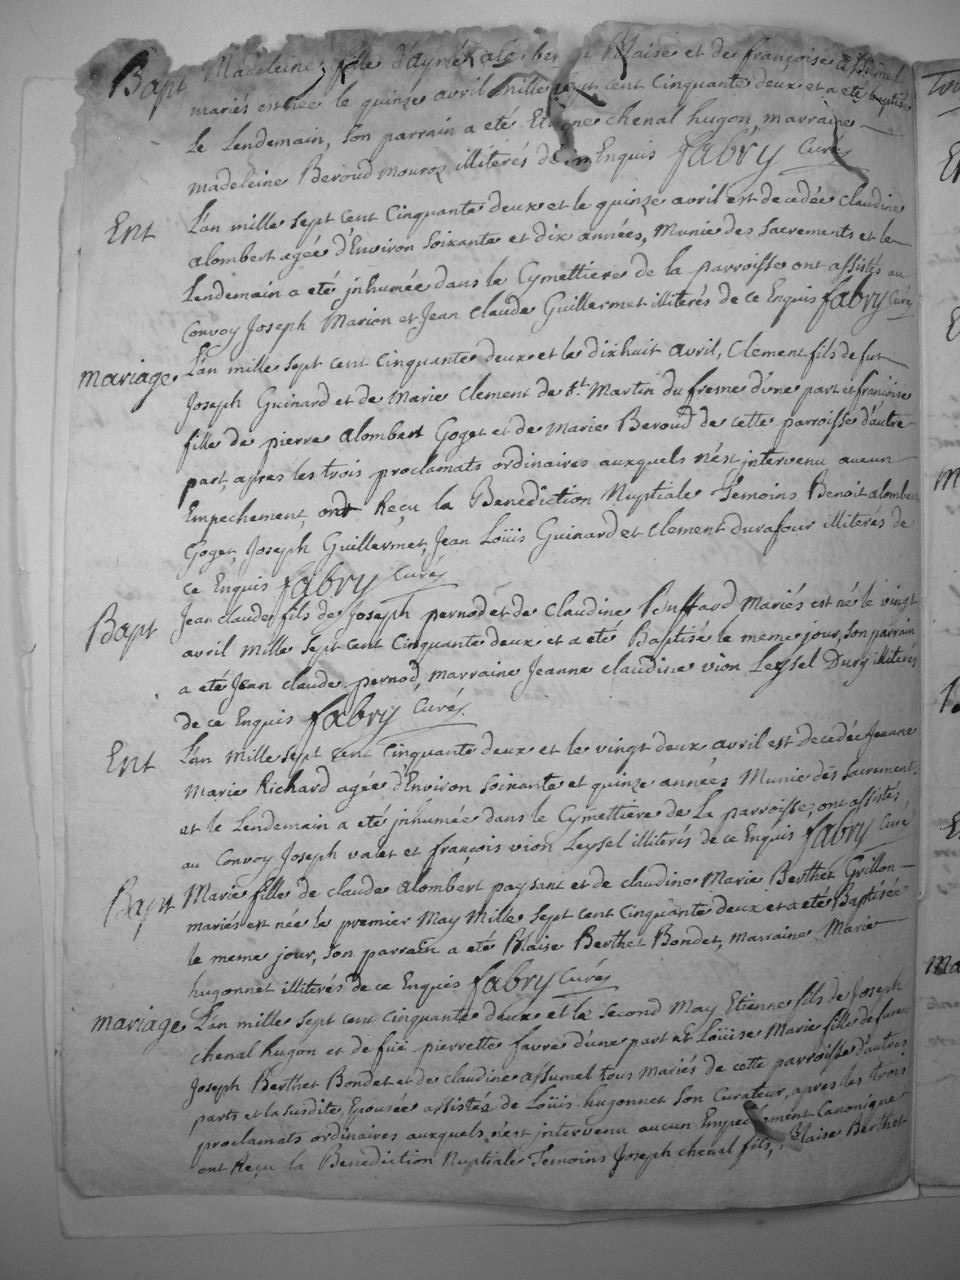 Bapt Madeleine fille d'aymé Blaise et de françoise
mariés est née le quinze avril mille sept cent Cinquante deux et a eté baptisée
Le Lendemain, Son parrain a eté Etienne chenal hugon, marraine
madeleine Beroud mouroz illiterés de ce Enquis fabry Curé
Ent L'an mille sept cent Cinquante deux et le quinze avril est decedée Claudine
alombert agée d'Environ Soixante et dix années, Munie des Sacrements et le
Lendemain a eté jnhumée dans le Cymettiere de la parroisse ont assistés au
Convoy Joseph Marion et Jean Claude Guillermet illiterés de ce Enquis fabry Curé
mariage L'an mille sept cent Cinquante deux et le dixhuit avril, Clement fils de fut
Joseph Guinard et de Marie Clement de St. Martin du fresne d'une part et francoise
fille de pierre alombert Goget et de Marie Beroud de cette parroisse d'autre
part, apres les trois proclamats ordinaires auxquels n'est jntervenu aucun
Empechement, ont Reçu la Benediction Nuptiale Temoins Benoit alombert
Goget, Joseph Guillermet, Jean Loüis Guinard et Clement durafour illiterés de
ce Enquis fabry Curé
Bapt Jean claude fils de Joseph pernod et de Claudine Buffard Mariés est né le vingt
avril mille Sept Cent Cinquante deux et a eté Baptisé le meme jour, Son parrain
a eté Jean claude pernod, marraine Jeanne claudine vion Leysel Dury illiterés
de ce Enquis fabry Curé
Ent L'an Mille Sept Cent Cinquante deux et le vingt deux avril est decedée Jeanne
Marie Richard agée d'Environ soixante et quinze années Munie des Sacrements
et le Lendemain a eté jnhumée dans le Cymettiere de La parroisse, ont assistés
au Convoy Joseph valet et françois vion Leysel illiterés de ce Enquis fabry Curé
Bapt Marie fille de claude alombert paysant et de claudine Marie Berthet Grillon
mariés est née le premier May Mille Sept Cent Cinquante deux et a eté Baptisée
le meme jour, Son parrain a eté Blaise Berthet Bondet, Marraine Marie
hugonnet illiterés de ce Enquis fabry Curé
mariage L'an mille sept cent Cinquante deux et le Second May Etienne fils de Joseph
chenal hugon et de fuë pierrette favre d'une part Et Loüise Marie fille de
Joseph Berthet Bondet et de claudine assumel tous mariés de cette parroisse d'autres
parts et la Susdite Epousée assistée de Loüis hugonnet Son Curateur, apres les trois
proclamats ordinaires auxquels n'est jntervenu aucun Empechement Canonique
ont Reçu la Benediction Nuptiale Temoins Joseph chenal fils, Blaise Berthet